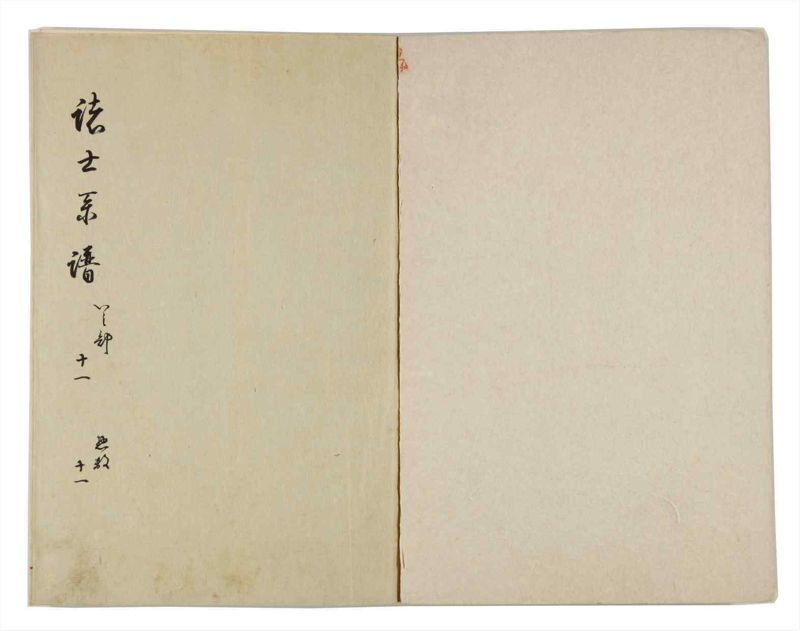 諸士系譜
い之部
十一
惣数
十一